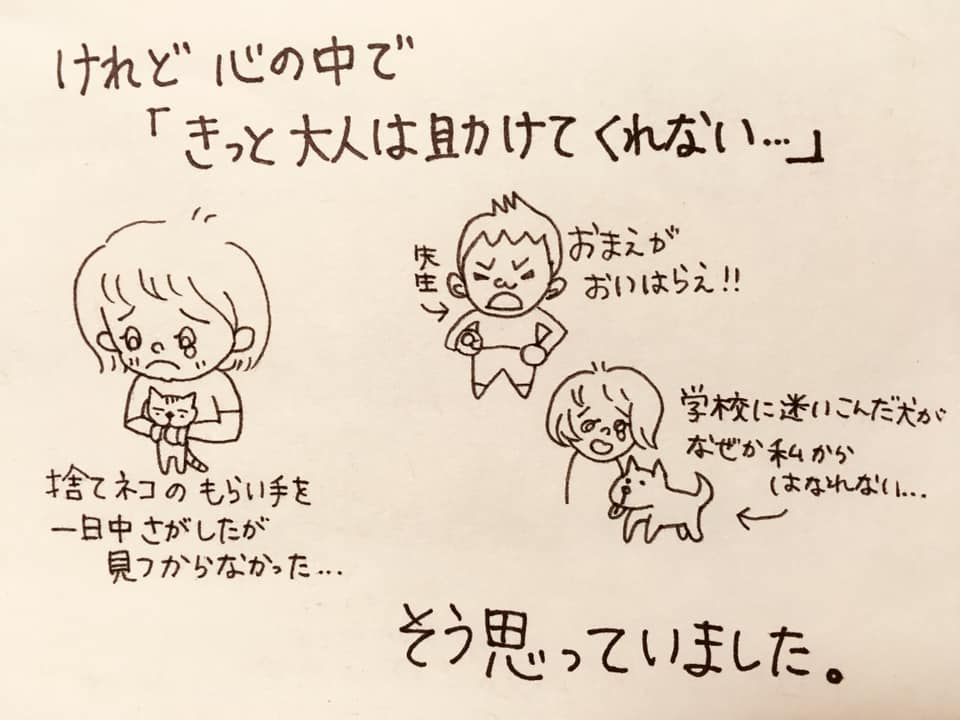 けれど 心の中で
「きっと大人は助けてくれない…」
先生
おまえが
おいはらえ!!
学校に迷いこんだ犬が
なぜか私から
はなれない…
捨てネコのもらい手を
一日中さがしたが
見つからなかった…
そう思っていました。